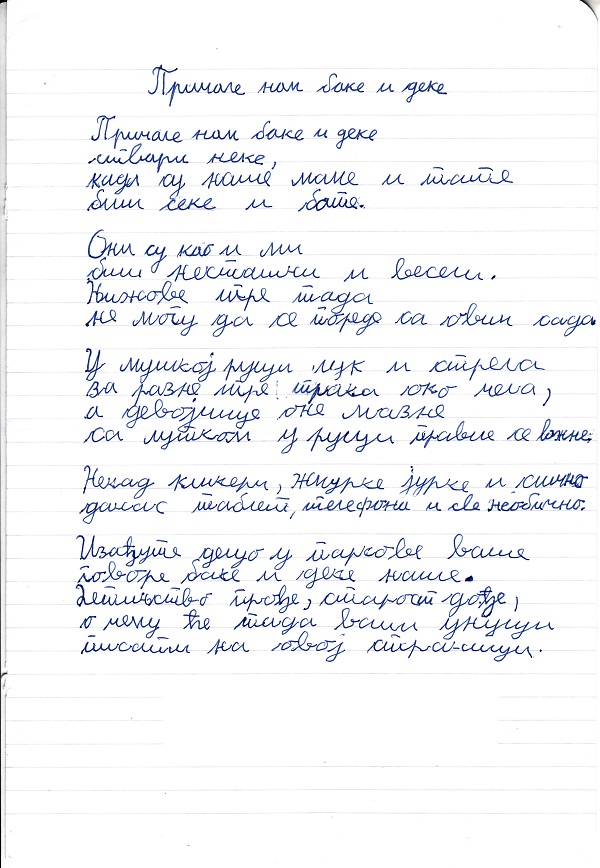 Причале нам баке и деке
Причале нам баке и деке
ствари неке,
када су наше маме и тате
биле секе и бате.
Они су као и ми
били несташни и весели.
Њихове игре тада
не могу да се пореде са овим сада.
У мушкој руци лук и стрела
за разне игре трака око чела,
а девојчице оне мазне
са лутком у руци правиле се важне.
Некад кликери, жмурке јурке и слично
данас таблет, телефони и све необично.
Изађите децо у паркове ваше
говоре баке и деке наше.
Детињство прође, старост дође,
о чему ће тада ваши унуци
писати на овој страници.